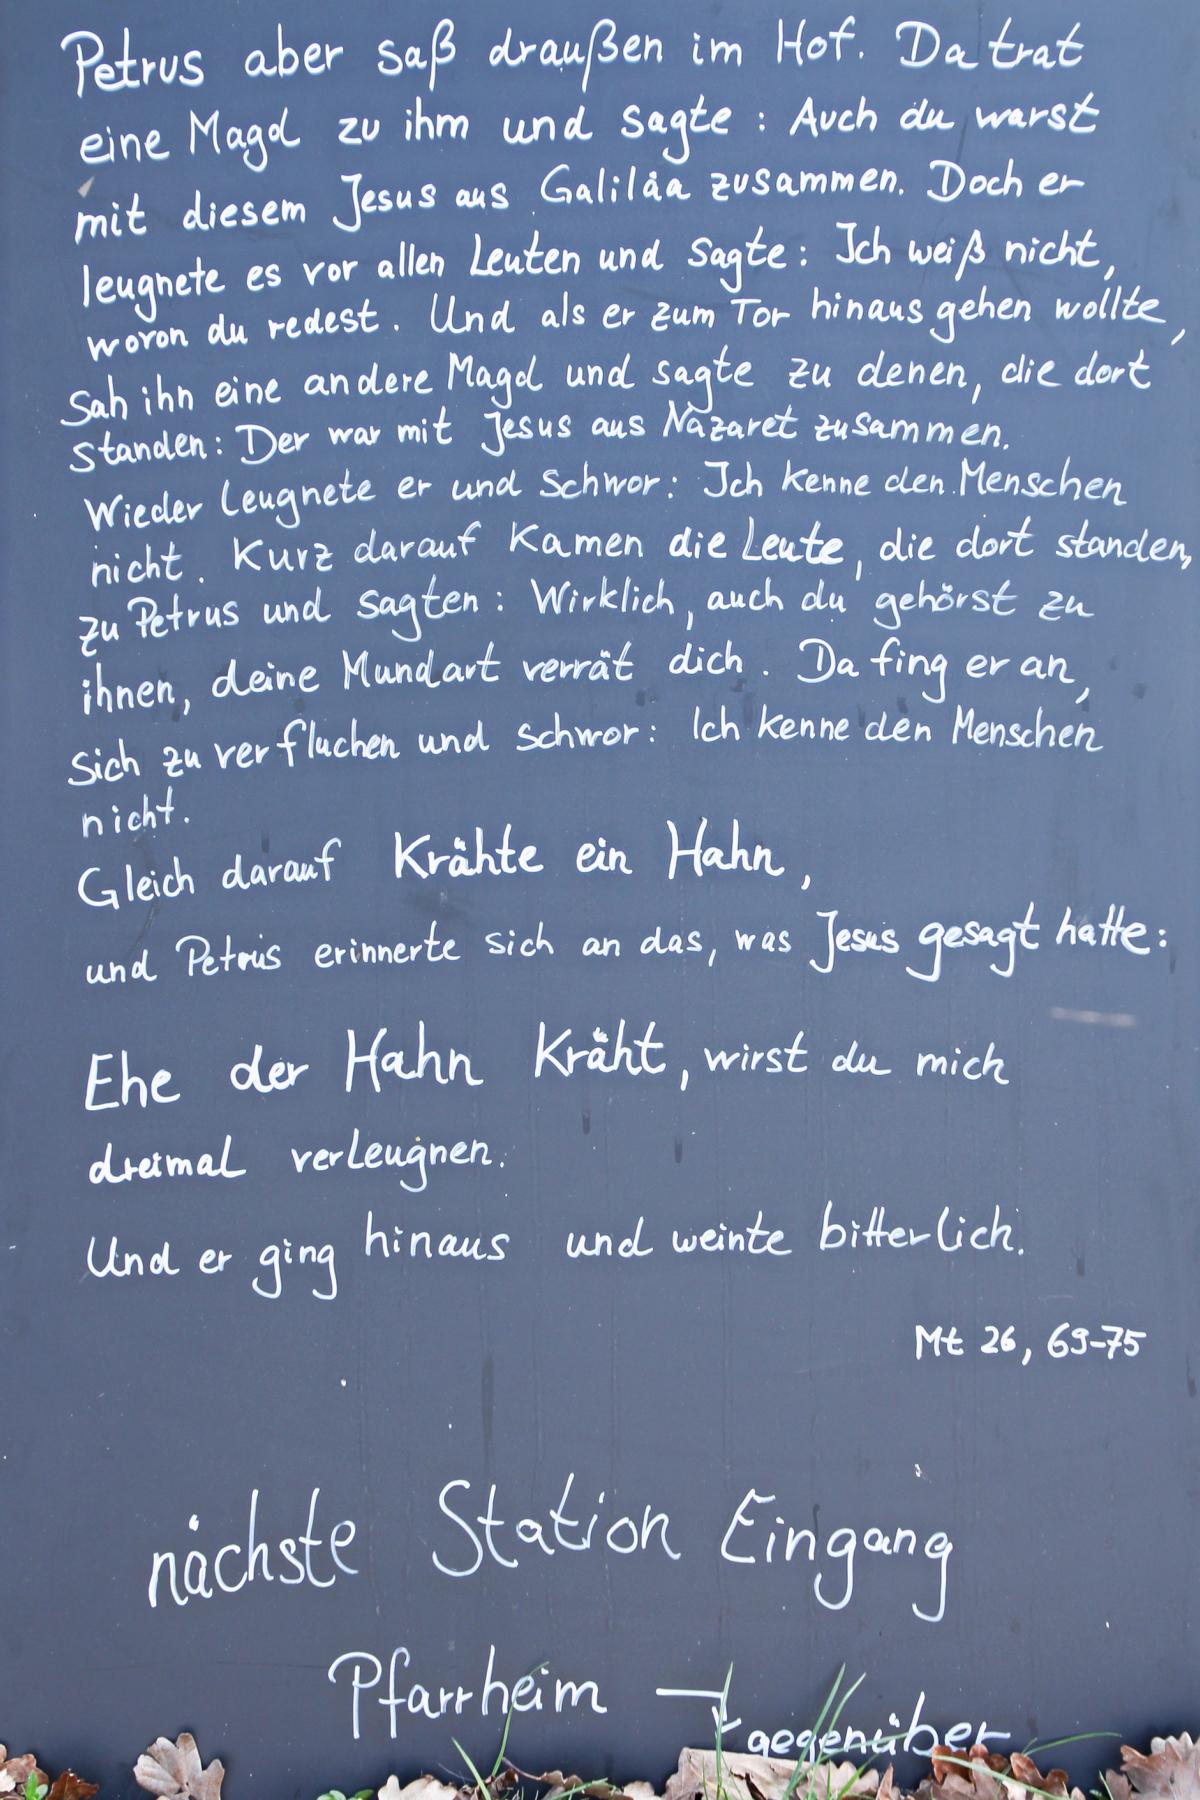 Petrus aber saß draußen im Hof. Da trat
eine Magd zu ihm und sagte : Auch du warst
mit diesem Jesus aus Galiläa zusammen. Doch er
leugnete es vor allen Leuten und sagte : Ich weiß nicht,
wovon du redest. Und als er zum Tor hinaus gehen wollte,
sah ihn eine andere Magd und sagte zu denen, die dort
standen: Der war mit Jesus aus Nazaret zusammen.
Wieder leugnete er und schwor: Ich kenne den Menschen
nicht. Kurz darauf kamen die Leute, die dort standen,
zu Petrus und sagten : Wirklich, auch du gehörst zu
ihnen, deine Mundart verrät dich. Da fing er an,
sich zu verfluchen und schwor: Ich kenne den Menschen
nicht.
Gleich darauf Krähte ein Hahn,
und Petrus erinnerte sich an das, was Jesus gesagt hatte:
Ehe der Hahn Kräht, wirst du mich
dreimal verleugnen.
Und er ging hinaus und weinte bitterlich.
Mt 26, 69-75
nächste Station Eingang
Pfarrheim
gegenüber